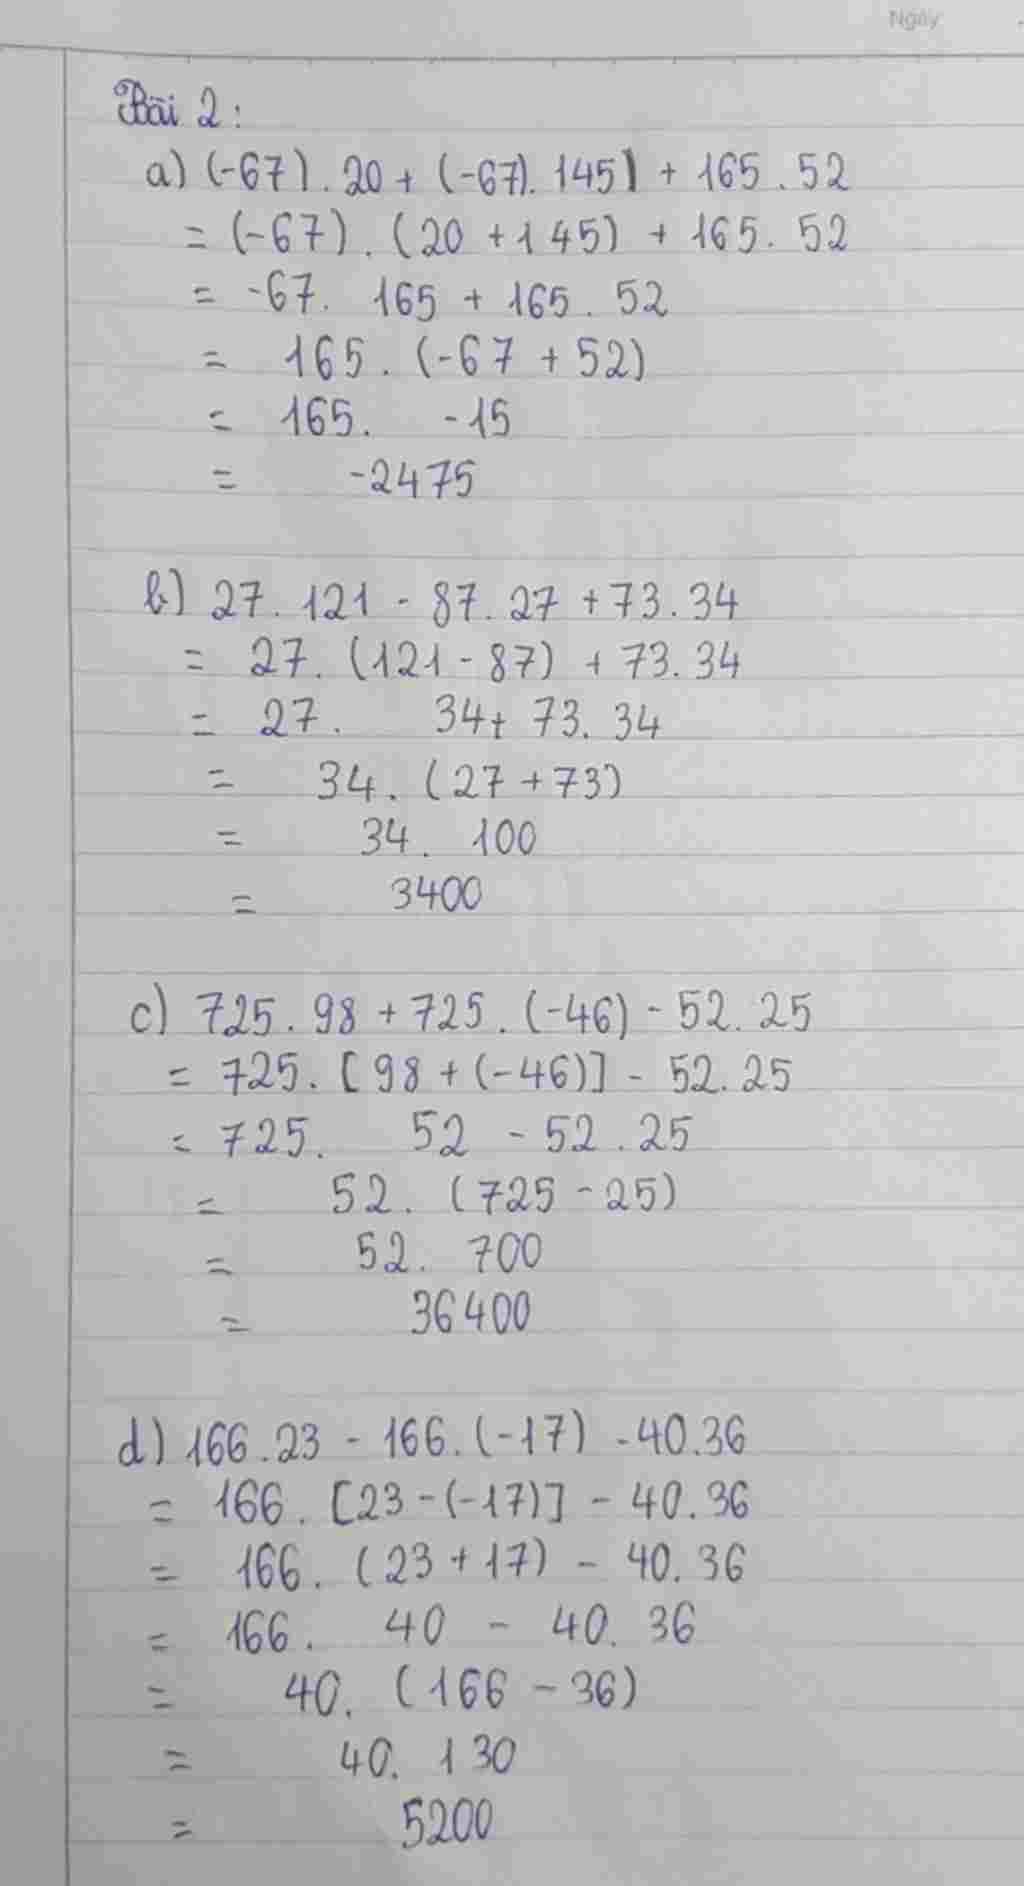 Ngày
Bài 2:
a) (-67). 20 + (-67). 145) + 165. 52
= (-67). (20 + 145) + 165. 52
= -67. 165 + 165. 52
= 165. (-67 + 52)
= 165. -15
= -2475
b) 27. 121 - 87. 27 + 73. 34
= 27. (121 - 87) + 73. 34
= 27. 34 + 73. 34
= 34. (27 + 73)
= 34. 100
= 3400
c) 725. 98 + 725. (-46) - 52. 25
= 725. [98 + (-46)] - 52. 25
= 725. 52 - 52. 25
= 52. (725 - 25)
= 52. 700
= 36400
d) 166. 23 - 166. (-17) - 40. 36
= 166. [23 - (-17)] - 40. 36
= 166. (23 + 17) - 40. 36
= 166. 40 - 40. 36
= 40. (166 - 36)
= 40. 130
= 5200